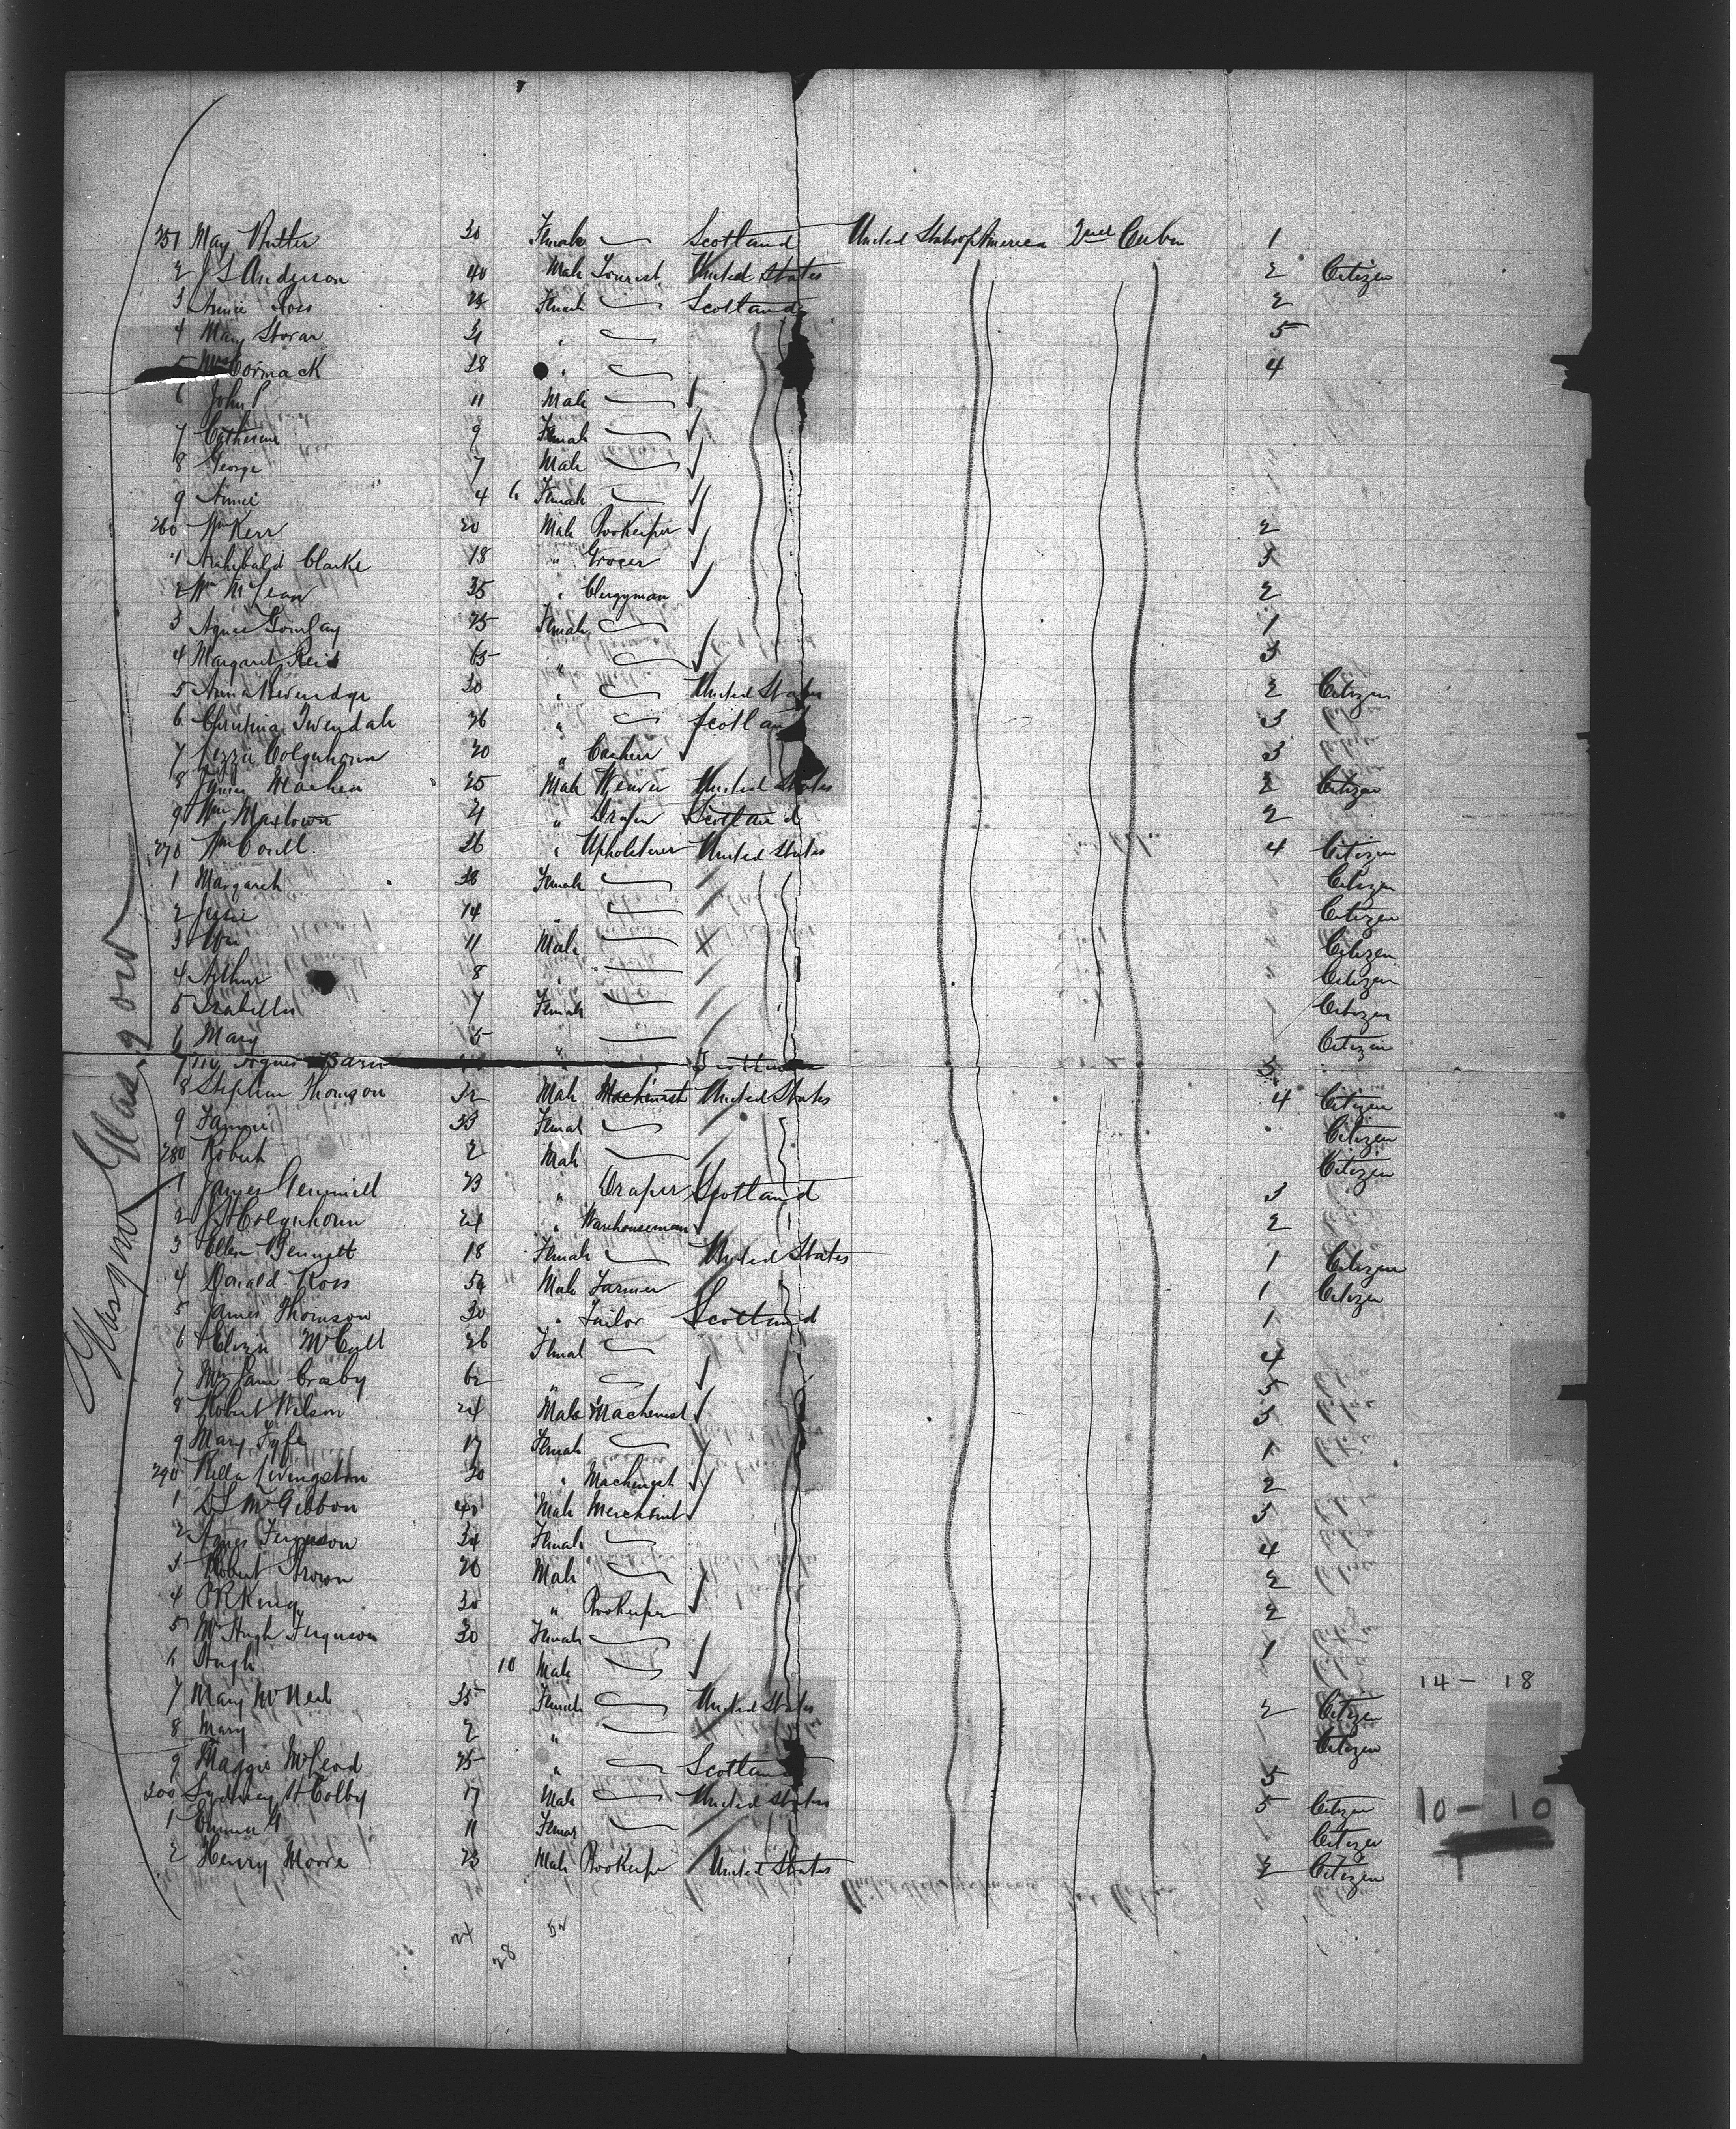 251 May 30 Female Scotland United States of America 2nd Cabin 1
2 J S Anderson 40 Male Tourist United States 2 Citizen
3 Annie Ross Female Scotland 2
4 Mary 5
5 Mrs Cormack 38 " 4
6 John P 11 Male
7 Catherine 9 Female
8 George 7 Male
9 Annie 4 Female
260 Wm Kerr 20 Male Bookeeper 2
1 Archibald Clarke 18 " Grocer 3
2 Wm McLean 35 " Clergyman 2
3 Agnes Gourlay 25 Female 1
4 Margaret Reid 65 " 3
5 Anna Beveridge 30 " United States 2 Citizen
6 Christina Tweedale 26 " Scotland 3
7 Lizzie Colquhoun 20 " Cashier 3
8 25 Male Weaver United States 2 Citizen
9 Wm 21 " Draper Scotland 2
270 Wm Coull 36 " Upholsterer United States 4 Citizen
1 Margaret 38 Female Citizen
2 Jessie 14 " Citizen
3 Wm 11 Male Citizen
4 Arthur 8 " Citizen
5 Isabella 7 Female Citizen
6 Mary 5 " Citizen
7 Agnes 3
8 Stephen Thomson 32 Male Machinist United States 4 Citizen
9 Fannie 33 Female Citizen
280 Robert 2 Male Citizen
1 James Gemmill 23 " Draper Scotland 3
2 Colquhoun 21 " Warehouseman 2
3 Ellen Bennett 18 Female United States 1 Citizen
4 Donald Ross 54 Male Farmer 1 Citizen
5 James Thomson 30 " Tailor Scotland 1
6 Eliza McCall 26 Female 4
7 Mrs Jane Crosby 62 " 5
8 Robert Wilson 24 Male Machinist 3
9 Mary Fyfe 17 Female 1
290 Bella Livingston 30 " Machinist 2
1 McGibbon 40 Male Merchant 3
2 Agnes Ferguson 34 Female 4
3 Robert Brown 20 Male 2
4 King 30 " Bookeeper 2
5 Mrs Hugh Ferguson 30 Female 1
6 Hugh 10 Male
14 - 18
7 Mary McNeil 35 Female United States 2 Citizen
8 Mary 2 " Citizen
9 Maggie McLeod 25 " Scotland 5
300 Sydney H Colby 17 Male United States 5 Citizen
10 - 10
1 Emma 11 Female Citizen
2 Henry Moore 23 Male Bookeeper United States 2 Citizen
24 28
Glasgow
Glasgow